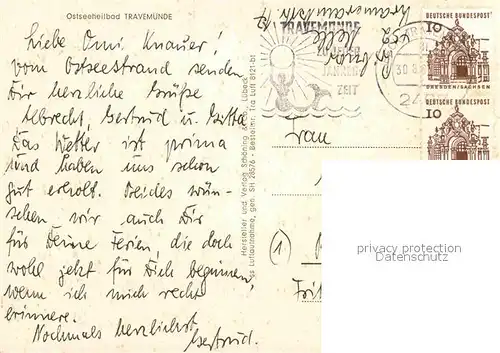 Ostseeheilbad TRAVEMÜNDE
Liebe Omi Knauer!
vom Ostseestrand senden
Dir herzliche Grüße
Albrecht, Gertrud u. Gitta
Das Wetter ist prima
und haben uns schon
gut erholt. Beides wün-
schen wir auch Dir
für Deine Ferien, die doch
wohl jetzt für Dich beginnen,
wenn ich mich recht
erinnere.
Nochmals herzlichst
Gertrud.
Hersteller und Verlag Schöning & Lübeck
Luftaufnahme, gen. SH 28576 - Bestellnr. Tra Luft 8121-bt
TRAVEMÜNDE
JAHRES
ZEIT
DEUTSCHE BUNDESPOST
10
DRESDEN/SACHSEN
DEUTSCHE BUNDESPOST
10
Frau
(1)
privacy protection
Datenschutz